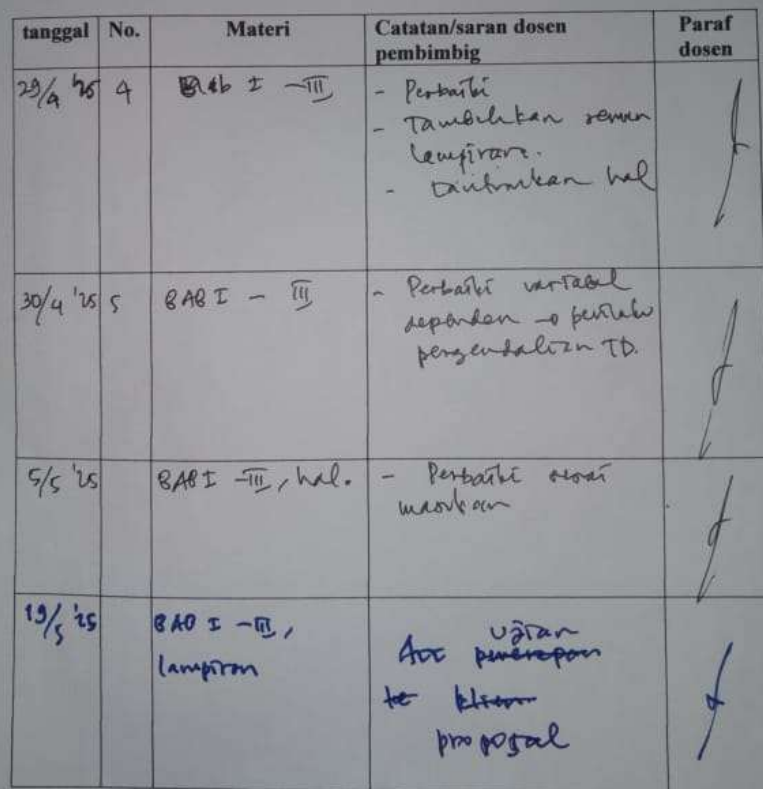 tanggal No. Materi Catatan/saran dosen pembimbig Paraf dosen
29/4 '25 4 Bab I - III - Perbaiki
- Tambahkan semua
lampiran.
- hal
30/4 '25 5 BAB I - III - Perbaiki variabel
dependen → perilaku
pengendalian TD.
5/5 '25 BAB I - III, hal. - Perbaiki sesuai
masukan
19/5 '25 BAB I - III,
lampiran
ujian
Acc penerapan
ke klien
proposal